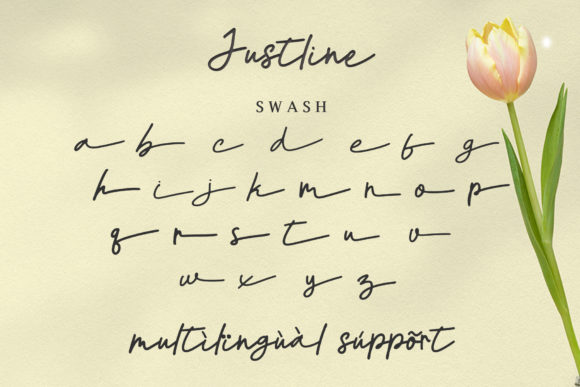 Justline
SWASH
a b c d e f g
h i j k m n o p
q r s t u v
w x y z
multìlïngùàl súppõřt